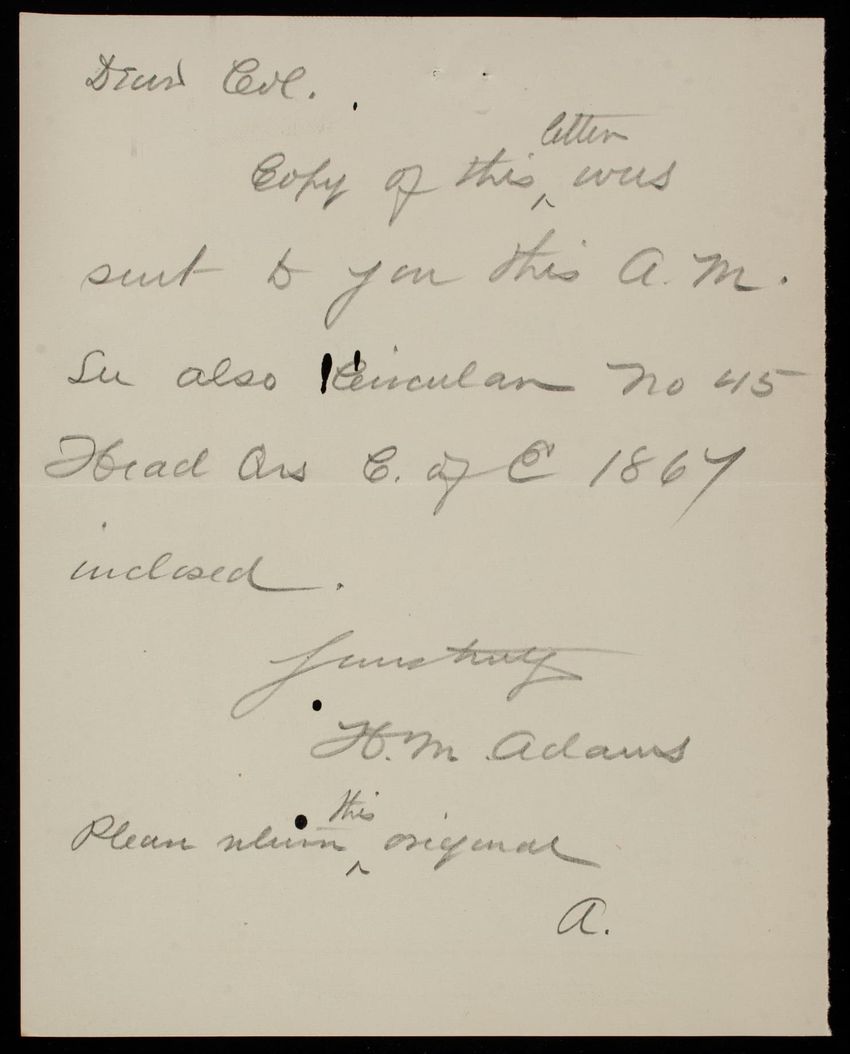 Dear Col.
Copy of this letter was
sent to you this A. M.
See also Circular No 45
Head Qrs C. of E 1867
inclosed.
Yours truly
H. M. Adams
Please return this original
A.